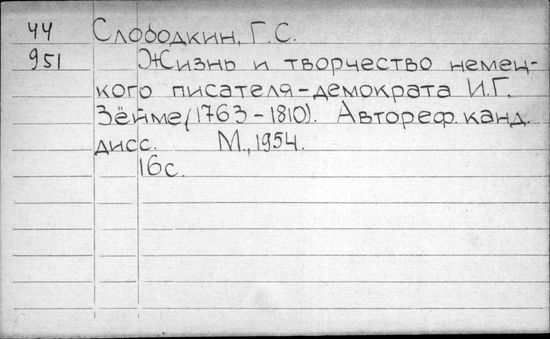 44 Слободкин, Г.С.
951 Жизнь и творчество немец-
кого писателя-демократа И.Г.
Зёйме (1763-1810). Автореф. канд.
дисс. М., 1954.
16с.